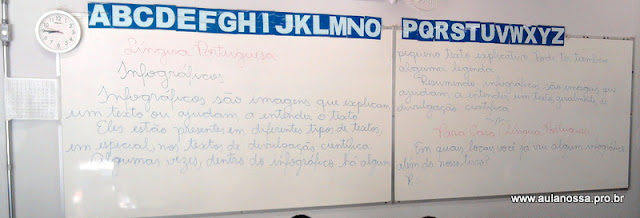 ABCDEFGHIJKLMNO
PQRSTUVWXYZ
Língua Portuguesa
Infográficos
Infográficos são imagens que explicam
um texto ou ajudam a entender o texto.
Eles estão presentes em diferentes tipos de textos,
em especial, nos textos de divulgação científica.
Algumas vezes, dentro do infográfico há algum
pequeno texto explicativo. Pode ter também
alguma legenda.
Resumindo: infográficos são imagens que
ajudam a entender um texto, geralmente de
divulgação científica.
Para Casa: Língua Portuguesa
Em quais locais você já viu algum infográfico
além do nosso livro?
R.
www.aulanossa.pro.br